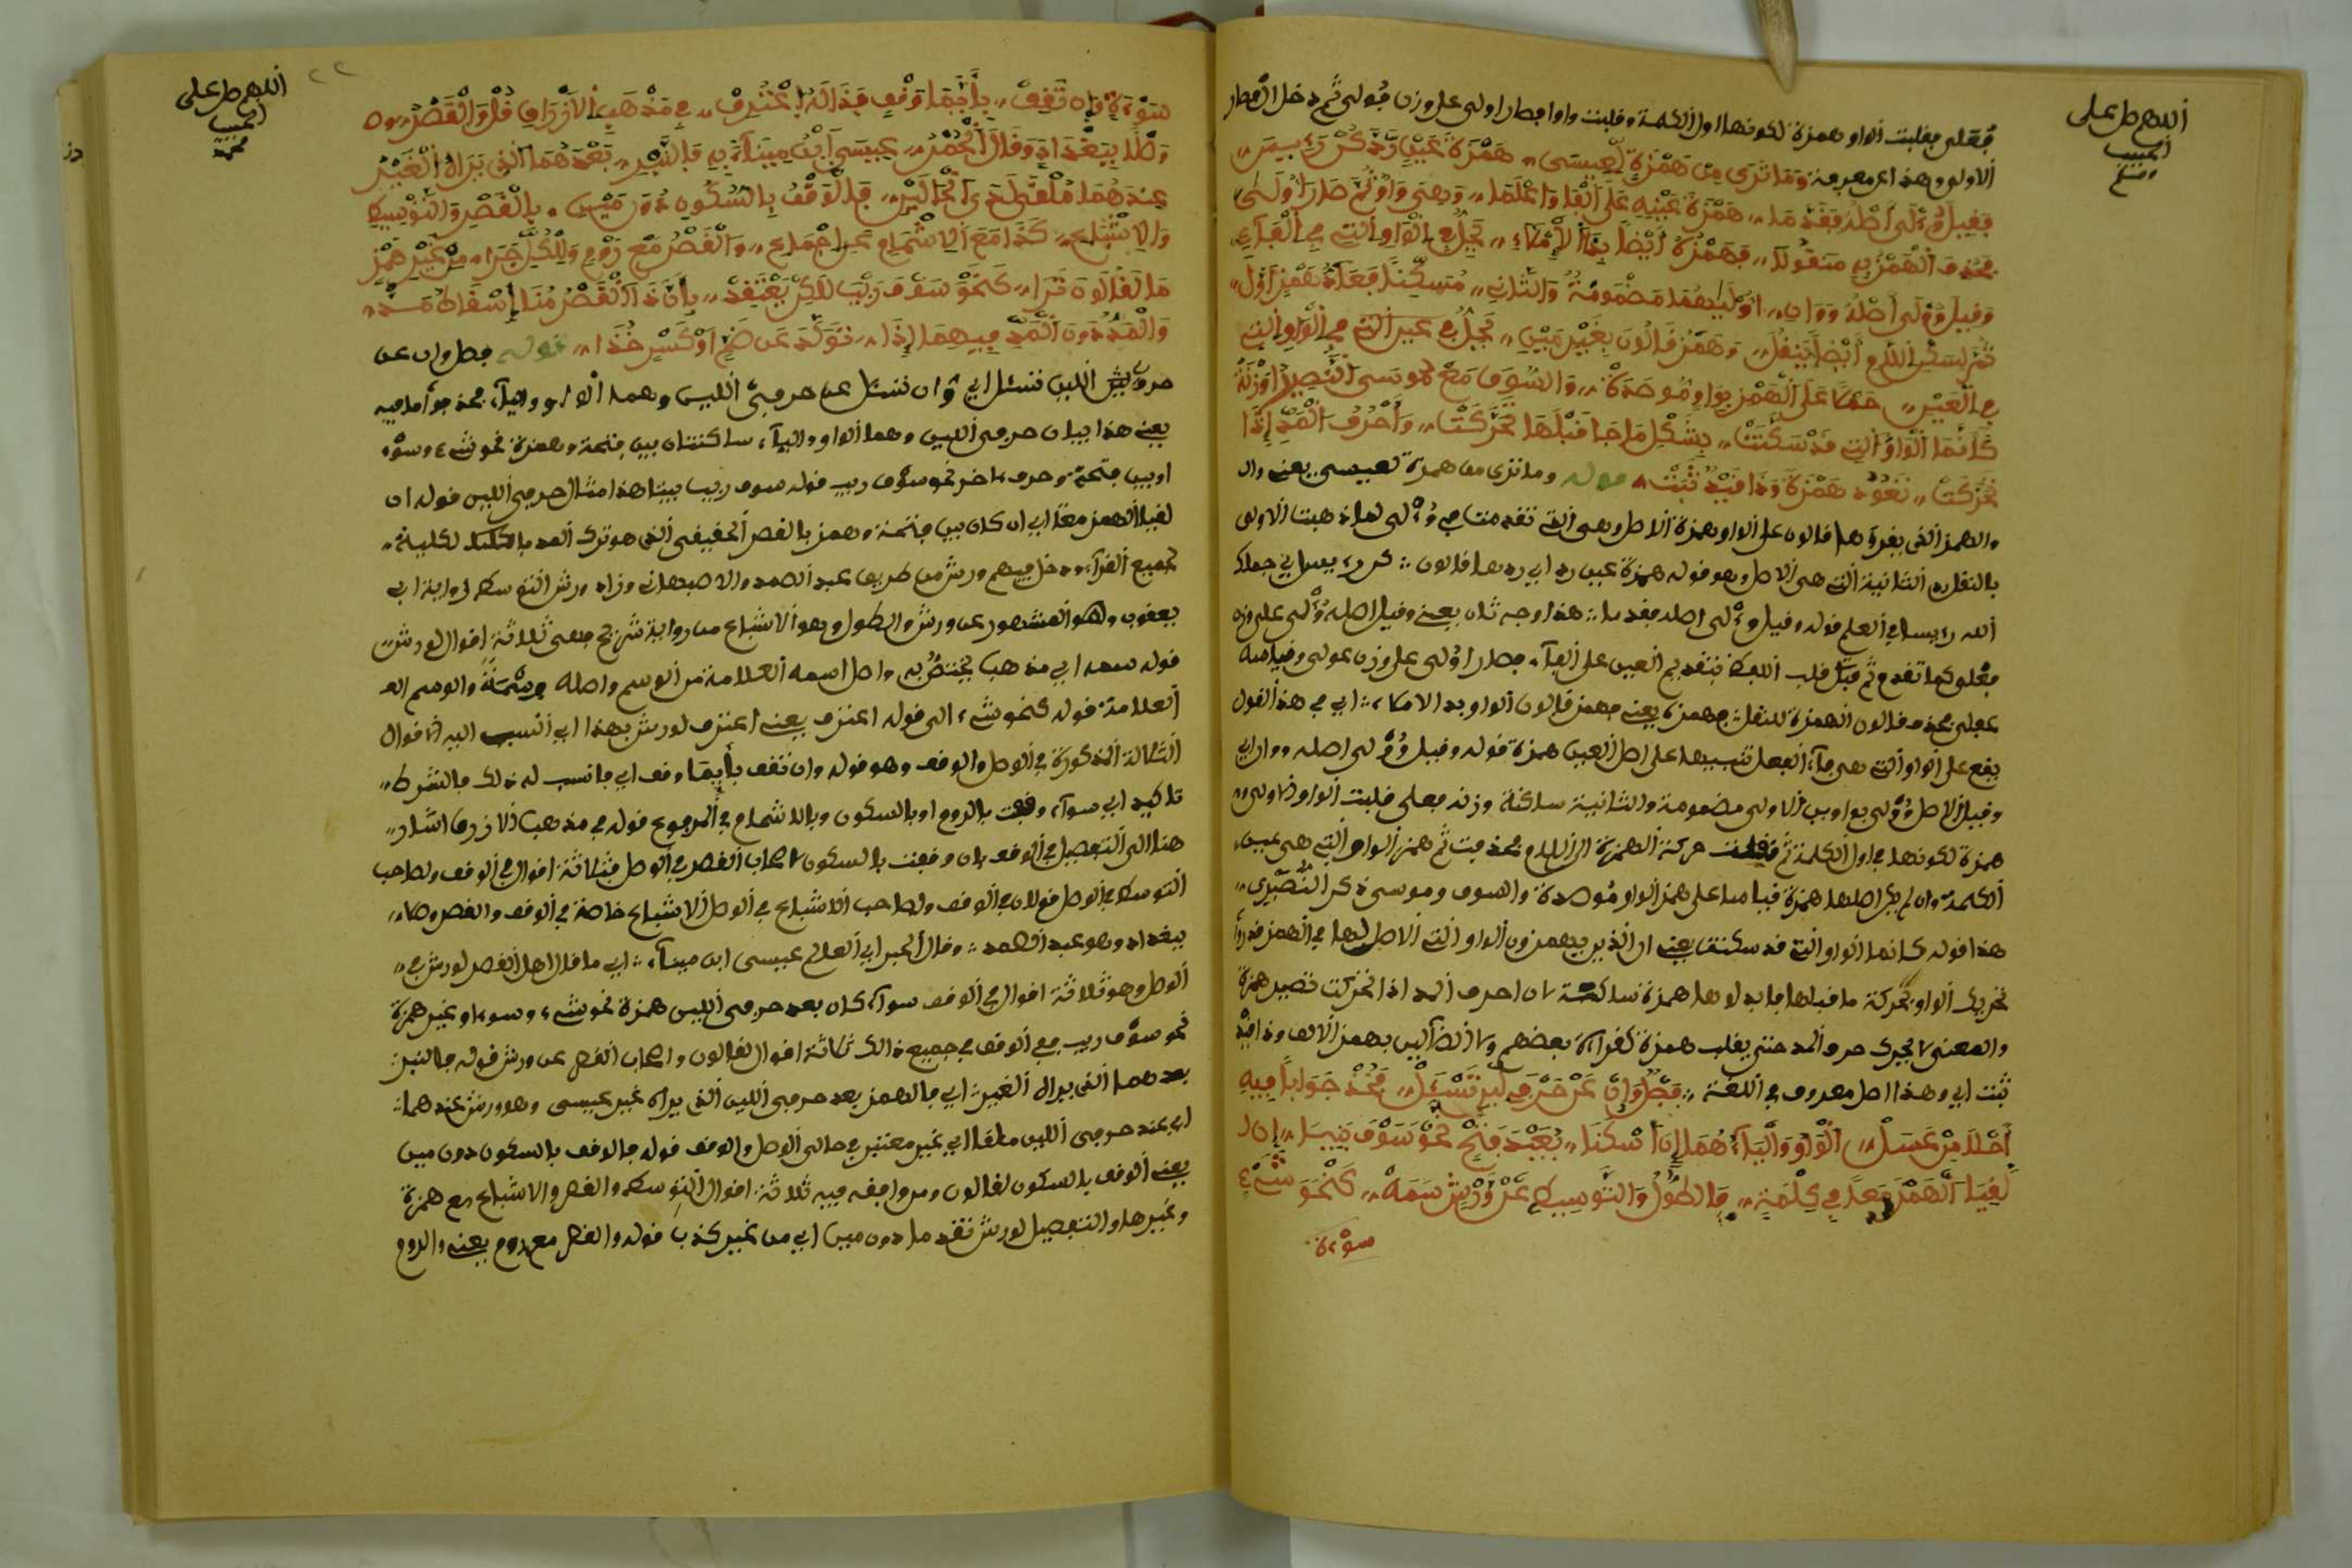 اللهم صل على
الحبيب
فعلى فقلبت الواو همزة لكونها اول الكلمة وقلبت واوا فصار اولى على وزن فولى ثم دخل ال فصار
الاولى وهذا اعم معرفة وَمَا تَرَى مِن هَمْزَةٍ لِعِيسَى هَمْزَةُ عَيْنٍ
فَقِيلَ وُءْلَى أَصْلُهُ فَقَدِّمَا هَمْزَةُ عَيْنِهِ عَلَى الْفَا وَاعْلَمَا وَبَعْضٌ وَاوٌ ثُمَّ صَارَ أُولَى
فَحَذَفَ الْهَمْزَ بِهِ مَنقُولَا فَهَمْزُهُ أَيْضًا بِذَا الْإِمْلَاءِ يَجِلُّ فِي الْوَاوِ الَّتِي فِي الْفَاءِ
وَقِيلَ وُوْلَى أَصْلُهُ وَوَاوَانِ أُولَيهُمَا مَضْمُومَةٌ وَالثَّانِي مُسَكَّنًا
ثُمَّ لِسَكْنِ اللَّامِ أَيْضًا يَنْقُلُ وَهَمْزُ قَالُونَ بِغَيْرِ مَيْنِ يَجِلُّ فِي غير التي في الْوَاوِ التي
فِي الْعَيْنِ حَمْلًا عَلَى الْهَمْزِ بِوَاوِ مُوصَدَهْ وَالسُّوقِ مَعْ مُوسَى
كَأَنَّمَا الْوَاوُ الَّتِي قَدْ سَكَنَتْ بِشَكْلِ مَا جَا قَبْلَهَا تَحَرَّكَتْ وَأَحْرُفُ الْمَدِّ إِذَا
تَحَرَّكَتْ تَعُودُ هَمْزَةً وَذَا قَيْدٌ ثَبَتْ قوله وما ترى من همزة لعيسى يعني وان
والهمز الذي يقرؤها قالون على الواو همزة الاصل وهي التي تقدمت في وُءْلى لما ذهبت الاولى
بالنقل رد الثانية التي هي الاصل وهو قوله همزة عين رد اي ردها قالون
الله رءيسا في العلم قوله وقيل وءلى اصله فقدما هذا وجه ثان يعني وقيل اصله وُءْلى على وزن
فعلى كما تقدم ثم قبل قلب بتقديم العين على الفاء فصار اوْلى على وزن عولى
عفلى فحذف قالون الهمزة للنقل فهمزه يعني فهمز قالون الواو بهذا الاملاء اي في هذا القول
يقع على الواو التي هي فاء الفعل تنبيها على اصل العين همزة قوله وقيل وُوْلى اصله وواوان
وقيل الاصل وُوْلى بواوين الاولى مضمومة والثانية ساكنة وزنه فعلى قلبت الواو الاولى
همزة لكونها في اول الكلمة ثم نقلت حركة الهمزة الى اللام فحذفت ثم همز الواو التي هي عين
الكلمة وان لم يكن اصلها همزة قياسا على همز الواو مُوصدة والسوق وموسى
هذا قوله كانما الواو التي قد سكنت يعني ان الذين يهمزون الواو التي لا اصل لها في الهمز
تحريك الواو بحركة ما قبلها فابدلوها همزة ساكنة لان احرف المد اذا تحركت تصير همزة
والمعنى لا يحرك حرف المد حتى يقلب همزة كقراءة بعضهم ولا الضألين بهمز الالف وذا قيد
ثبت اي وهذا اصل معروف في اللغة فَصْلٌ وَإِنْ عَنْ حَرْفَيِ اللِّينِ تَسْأَلْ فَخُذْ جَوَابًا فِيهِ
أَحْلَا مِنْ عَسَلْ الْوَاوُ وَالْيَاءُ هُمَا إِنْ أُسْكِنَا بُعَيْدَ فَتْحٍ نَحْوُ سَوْفَ بَيْنَنَا إِنْ
لَقِيَا الْهَمْزَ مَعًا فِي كِلْمَةِ فَالطُّولُ وَالتَّوْسِيطُ عَنْ وَرْشٍ سَمَهْ كَنَحْوِ شَيْءٍ
سوءة
اللهم صل على
الحبيب
محمد
٢٢
سَوْءَةٍ وَإِن تَقِفْ بِأَيِّمَا وَقْفٍ فَذَا لَهُ اعْتَرِفْ فِي مَذْهَبِ الْأَزْرَقِ قُلْ وَالْقَصْرُ
بِبَغْدَاد وَقَالَ الْحَبْرُ عِيسَى ابْنُ مِينَاءٍ بِهِ فَالنَّبْرُ بَعْدَهُمَا الَّذِي يَرَاهُ الْغَيْرُ
عِنْدَهُمَا مُلْغًى لَدَى الْحَالَيْنِ فَالْوَقْفُ بِالسُّكُونِ دُونَ مَيْنِ بِالْقَصْرِ وَالتَّوْسِيطِ
وَالْإِشْبَاعِ كَذَا مَعَ الْإِشْمَامِ عَنْ إِجْمَاعِ وَالْقَصْرُ مَعْ رَوْمٍ وَلِلْكُلِّ جَرَا مِنْ غَيْرِ هَمْزٍ
مَا لِقَالُونَ تَرَا كَنَحْوِ سَوْفَ رَيْبَ لَكِنْ يَعْتَقِدْ بِأَنَّ ذَا الْقَصْرَ هُنَا إِسْقَاطُ مَدّ
وَالْمَدُّ دُونَ الْمَدِّ فِيهِمَا إِذَا تَوَلَّدَ عَن ضَمٍّ أَوْ كَسْرٍ خُذَا قوله فصل وان عن
حرفي اللين تسئل اي وان تسئل عن حرفي اللين وهما الواو والياء فخذ جوابا فيه
يعني هذا بيان حرفي اللين وهما الواو والياء ساكنتان بين فتحة وهمزة نحو شيء وسوء
او بين فتحة وحرف اخر نحو سوف ريب قوله سوف ريب بيننا هذا مثال حرفي اللين قوله ان
لقيا الهمز معا اي ان كان بين فتحة وهمز بالقصر الحقيقي الذي هو ترك المد بالكلية
لجميع القراء ودخل فيهم ورش من طريق عبد الصمد والاصبهاني وزاد ورش التوسط
يعقوب وهو المشهور عن ورش والطول وهو الاشباع من رواية فهي ثلاثة اقوال لورش
قوله سمه اي مذهب يختص به واصل اسمه العلامة من الوسم واصله وسمة والوسم
العلامة قوله كنحو شيء الى قوله اعترف يعني اعترف لورش بهذا اي انسب اليه الاقوال
الثلاثة المذكورة في الوصل والوقف وهو قوله وان تقف بأيما وقف اي فانسب له ذلك فالشرط
تاكيد اي سواء وقفت بالروم او بالسكون وبالاشمام في المرفوع قوله في مذهب الازرق اشار
هنا الى التفصيل في الوقف بان وقفت بالسكون لاصحاب القصر في الوصل فثلاثة اقوال في الوقف ولصاحب
التوسط في الوصل قولان في الوقف ولصاحب الاشباع في الوصل الاشباع خاصة في الوقف والقصر وصلا
ببغداد وهو عبد الصمد وقال الحبر اي العالم عيسى ابن ميناء اي ما قال اهل القصر لورش في
الوصل وهو ثلاثة اقوال في الوقف سواء كان بعد حرفي اللين همزة نحو شيء وسوء او غير همزة
نحو سوف ريب ففي الوقف في جميع ذالك ثلاثة اقوال لقالون واصحاب القصر عن ورش قوله فالنبر
بعدهما الذي يراه الغير اي فالهمز بعد حرفي اللين الذي يراه غير عيسى وهو ورش عندهما
اي عند حرفي اللين ملغا اي غير معتبر في حالى الوصل والوقف قوله فالوقف بالسكون دون مين
يعني الوقف بالسكون لقالون ومن وافقه فيه ثلاثة اقوال التوسط والقصر والاشباع مع همزة
وغيرها والتفصيل لورش تقدم دون مين اي من غير كذب قوله والقصر مع روم يعني والروم